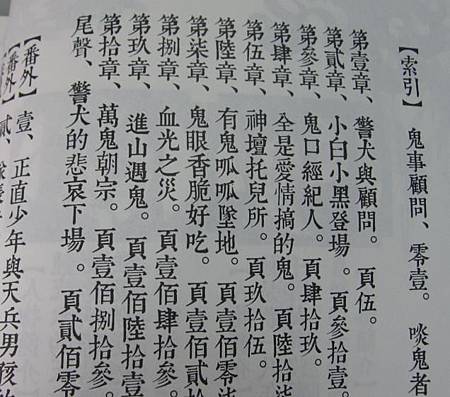 【索引】 鬼事顧問、零壹。 啖鬼者
第壹章、警犬與顧問。 頁伍。
第貳章、小白小黑登場。 頁參拾壹。
第參章、鬼口經紀人。 頁肆拾玖。
第肆章、全是愛情搞的鬼。 頁陸拾柒
第伍章、神壇托兒所。 頁玖拾伍。
第陸章、有鬼呱呱墜地。 頁壹佰零柒
第柒章、鬼眼香脆好吃。 頁壹佰貳拾
第捌章、血光之災。 頁壹佰肆拾參。
第玖章、進山遇鬼。 頁壹佰陸拾壹
第拾章、萬鬼朝宗。 頁壹佰捌拾參。
尾聲、警犬的悲哀下場。 頁貳佰零
【番外】壹、正直少年與天兵男孩
【番外】貳、